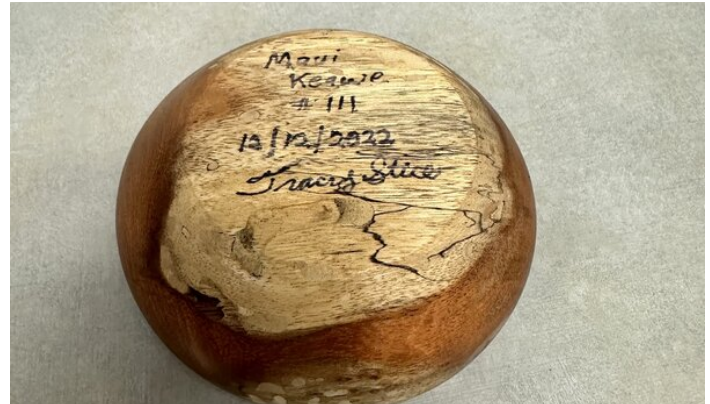 Maui
Keawe
# 111
12/12/2022
Tracy Stice